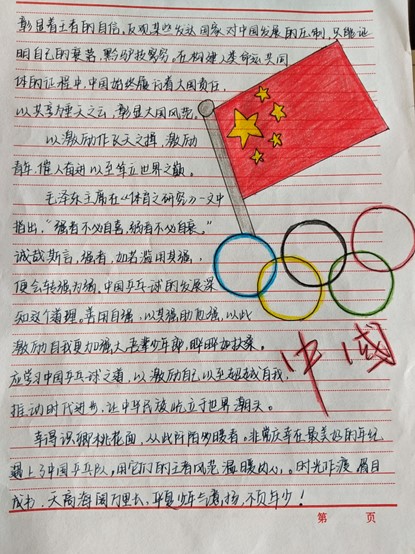 彰显着王者的自信,反观某些发达国家对中国发展的压制,只能证
明自己的衰落,黔驴技穷。在构建人类命运共同
体的征程中,中国始终履行着大国责任,
以共享为垂天之云,彰显大国风范。
以激励作飞天之墀,激励
青年,催人奋进以至笔立世界之巅。
毛泽东主席在《体育之研究》一文中
指出,“强者不必自喜,弱者不必自哀。”
诚哉斯言,强者,如若滥用其强,
便会转强为弱,中国乒乓球的发展深
知这个道理。善用自强,以其强助他强,以此
激励自我更加强大,吾辈少年郎,晔晔如扶桑。
应学习中国乒乓球之道,以激励自己,以至超越自我,
推动时代进步,让中华民族屹立于世界潮头。
幸得识卿桃花面,从此阡陌多暖春,非常庆幸在最美好的年纪
遇上了中国乒乓队,用它们的王者风范温暖内心。时光作渡 眉目
成书,天高海阔万里长,华夏少年意气扬,不负年少!
中国
第 页